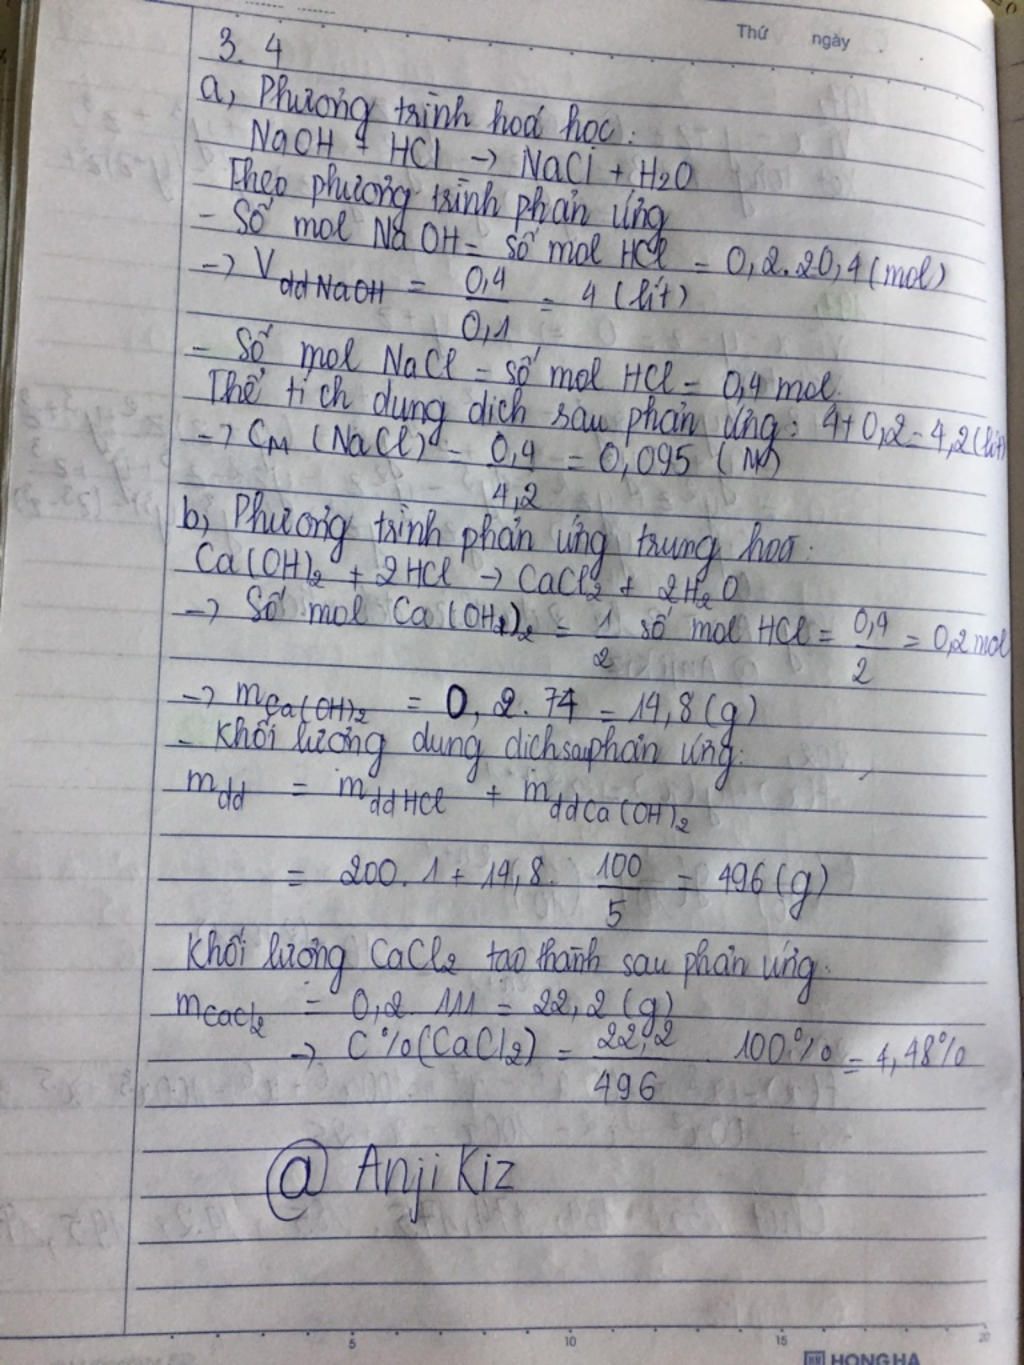 Thứ ngày
3.4
a, Phương trình hoá học:
NaOH + HCl → NaCl + H2O
Theo phương trình phản ứng
- Số mol NaOH = số mol HCl = 0,2.20,4 (mol)
→ VddNaOH = 0,4/0,1 = 4 (lít)
- Số mol NaCl = số mol HCl = 0,4 mol.
Thể tích dung dịch sau phản ứng: 4+0,2=4,2 (lít)
→ CM (NaCl) = 0,4/4,2 = 0,095 (M)
b, Phương trình phản ứng trung hoà:
Ca(OH)2 + 2HCl → CaCl2 + 2H2O
→ Số mol Ca(OH2)2 = 1/2 số mol HCl = 0,4/2 = 0,2 mol
→ mCa(OH)2 = 0,2.74 = 14,8 (g)
- Khối lượng dung dịch sau phản ứng:
mdd = mddHCl + mddCa(OH)2
= 200.1 + 14,8. 100/5 = 496 (g)
Khối lượng CaCl2 tạo thành sau phản ứng:
mCaCl2 = 0,2.111 = 22,2 (g)
→ C%(CaCl2) = 22,2/496 . 100% = 4,48%
@ Anji Kiz
5 10 15 20
HONG HA